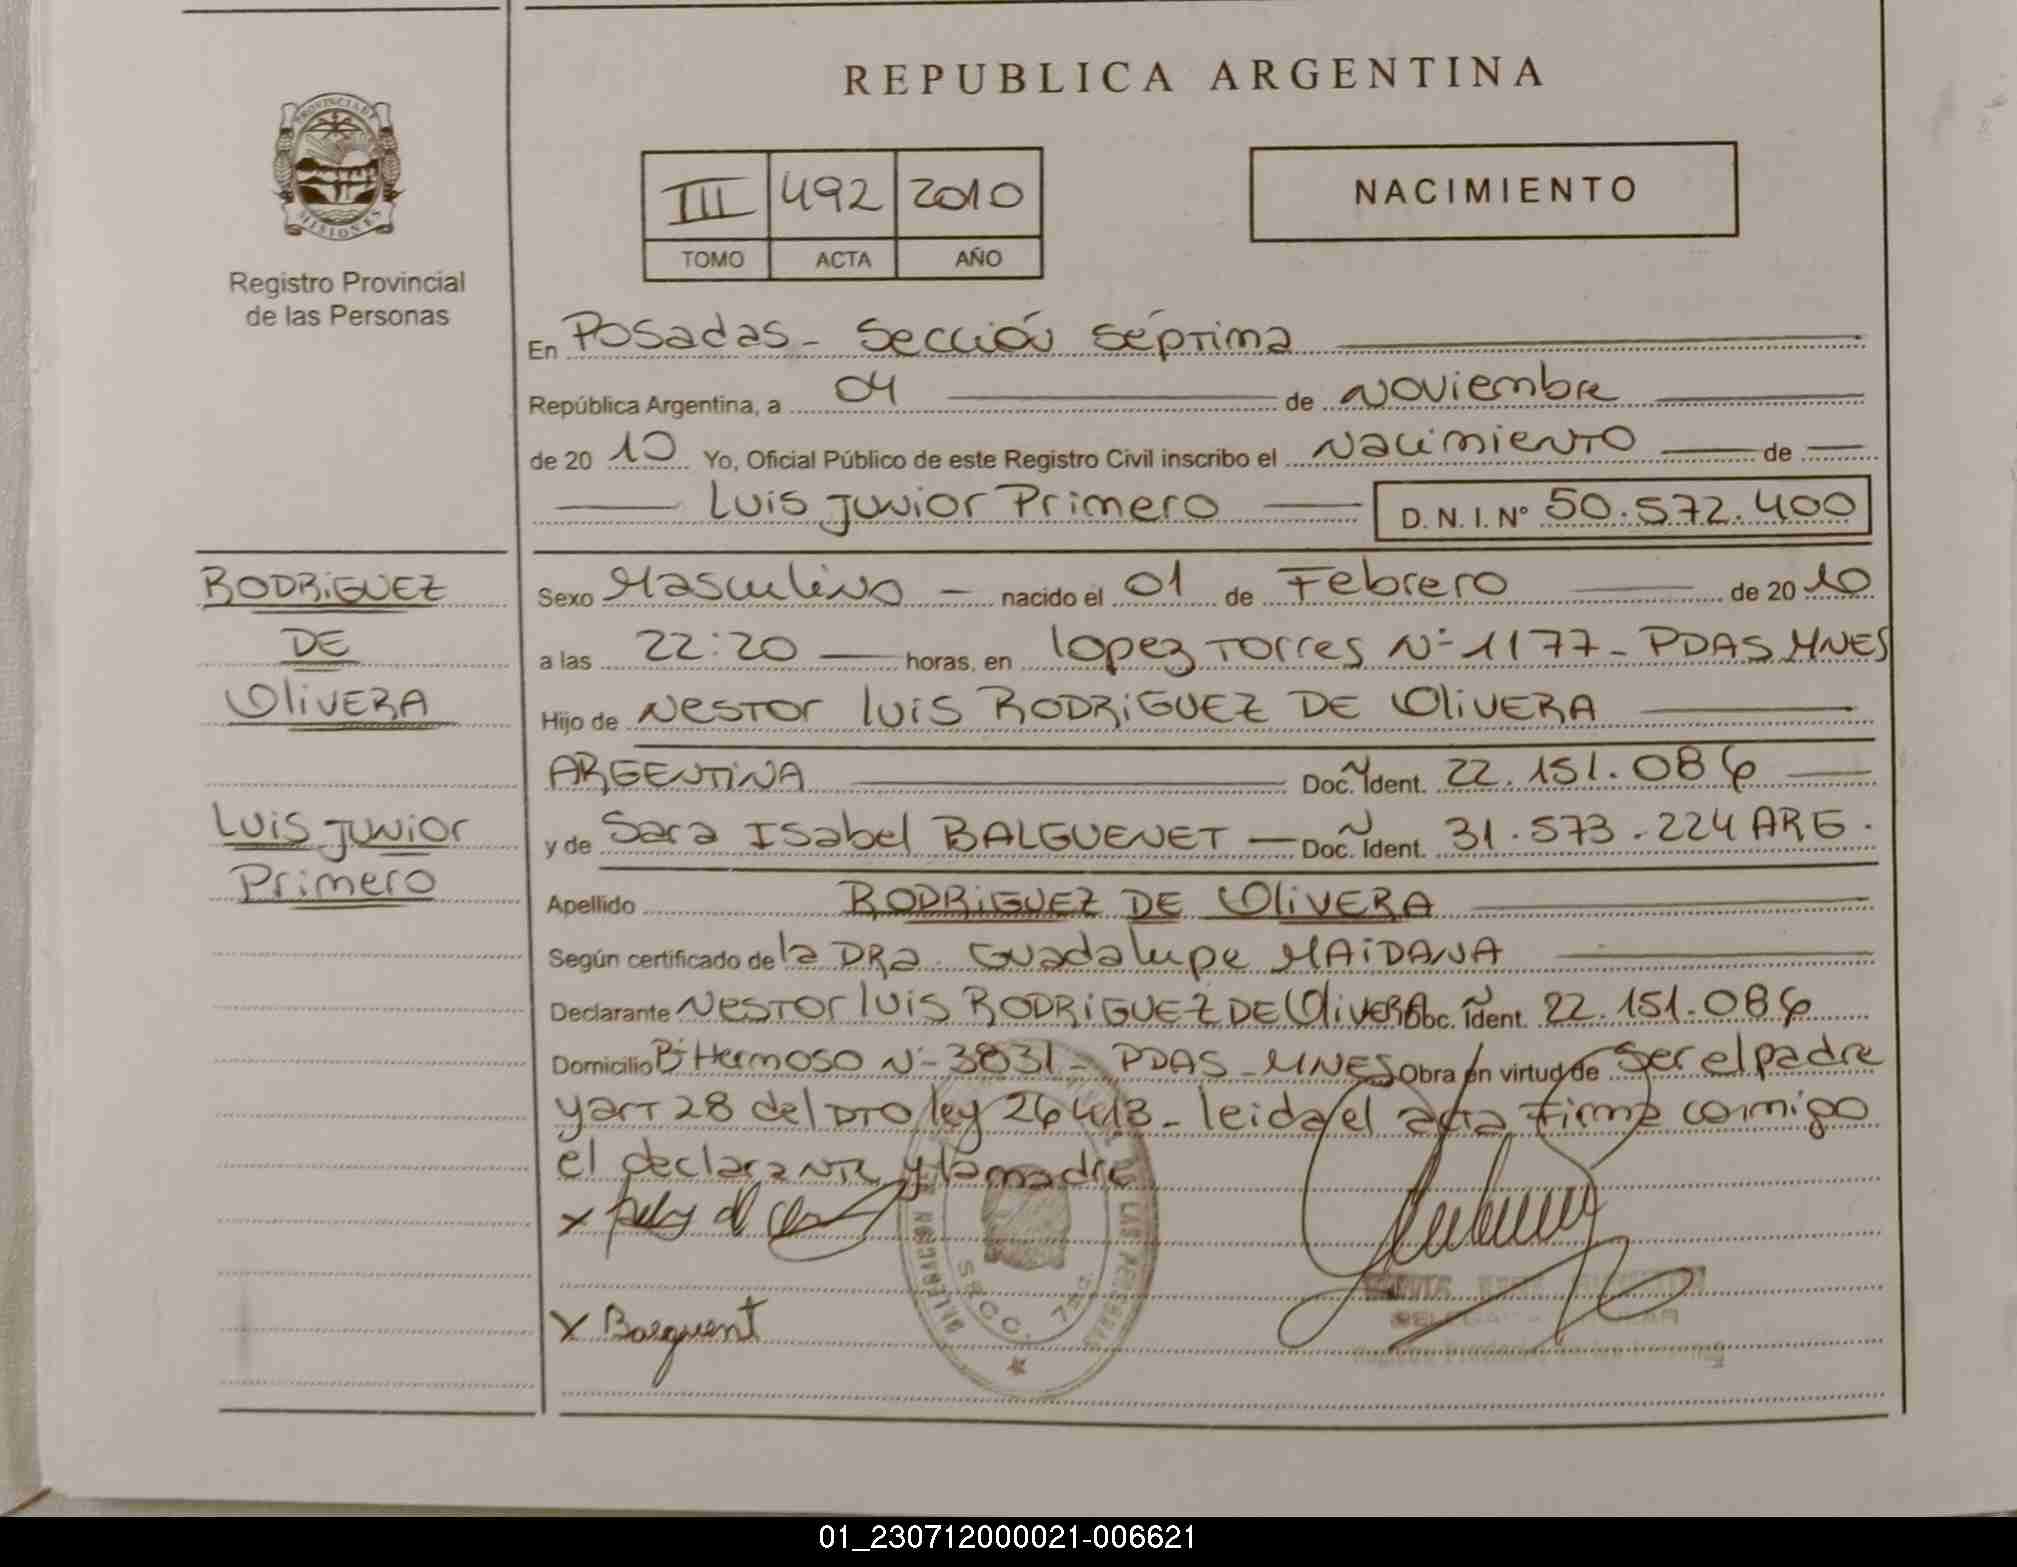 REPUBLICA ARGENTINA
PROVINCIA DE
MISIONES
Registro Provincial
de las Personas
III 492 2010
TOMO ACTA AÑO
NACIMIENTO
En Posadas - Sección Séptima
República Argentina, a 04 de Noviembre
de 20 10 Yo, Oficial Público de este Registro Civil inscribo el Nacimiento de
Luis Junior Primero D.N.I. Nº 50.572.400
RODRIGUEZ
DE
OLIVERA
Luis Junior
Primero
Sexo Masculino - nacido el 01 de Febrero de 20 10
a las 22:20 horas, en Lopez Torres Nº 1177 - PDAS MNES
Hijo de Nestor Luis RODRIGUEZ DE OLIVERA
ARGENTINA Doc. Ident. 22.151.086
y de Sara Isabel BALGUENET - Doc. Ident. 31.573.224 ARG.
Apellido RODRIGUEZ DE OLIVERA
Según certificado de la DRa. Guadalupe MAIDANA
Declarante Nestor Luis RODRIGUEZ DE OLIVERA Doc. Ident. 22.151.086
Domicilio Bº Hermoso Nº 3831 - PDAS - MNES Obra en virtud de ser el padre
y art 28 del DTO ley 26413 - leida el acta firma conmigo
el declarante y la madre
SECC. 7ma.
01_230712000021-006621